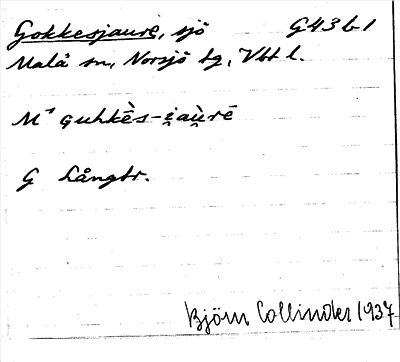 Gokkesjaure, sjö G43b1
Malå sn, Norsjö tg, Vbt l.
M⁻¹ guhkḕs-i̯aù̯rē
G Långtr.
Björn Collinder 1937